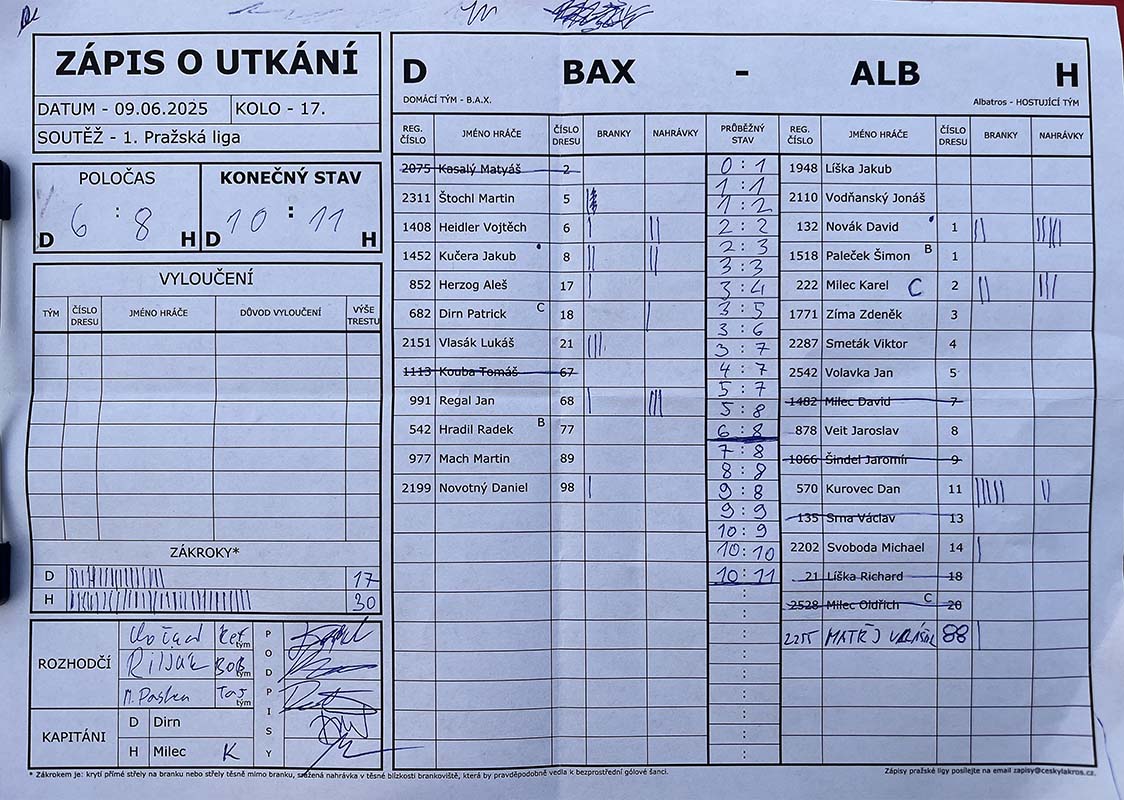 ZÁPIS O UTKÁNÍ
DATUM - 09.06.2025 KOLO - 17.
SOUTĚŽ - 1. Pražská liga
POLOČAS KONEČNÝ STAV
6 : 8 10 : 11
D H D H
VYLOUČENÍ
TÝM ČÍSLO DRESU JMÉNO HRÁČE DŮVOD VYLOUČENÍ VÝŠE TRESTU
ZÁKROKY*
D 17
H 30
ROZHODČÍ
tým
tým
M. tým
PODPISY
KAPITÁNI
D Dirn
H Milec K
D BAX - ALB H
DOMÁCÍ TÝM - B.A.X. Albatros - HOSTUJÍCÍ TÝM
REG. ČÍSLO JMÉNO HRÁČE ČÍSLO DRESU BRANKY NAHRÁVKY PRŮBĚŽNÝ STAV REG. ČÍSLO JMÉNO HRÁČE ČÍSLO DRESU BRANKY NAHRÁVKY
2075 Kasalý Matyáš 2
2311 Štochl Martin 5
1408 Heidler Vojtěch 6 | ||
1452 Kučera Jakub 8 || ||
852 Herzog Aleš 17 |
682 Dirn Patrick C 18 |
2151 Vlasák Lukáš 21 |||
1113 Kouba Tomáš 67
991 Regal Jan 68 | |||
542 Hradil Radek B 77
977 Mach Martin 89
2199 Novotný Daniel 98 |
0 : 1
1 : 1
1 : 2
2 : 2
2 : 3
3 : 3
3 : 4
3 : 5
3 : 6
3 : 7
4 : 7
5 : 7
5 : 8
6 : 8
7 : 8
8 : 8
9 : 8
9 : 9
10 : 9
10 : 10
10 : 11
:
:
:
:
:
:
:
:
:
1948 Líška Jakub
2110 Vodňanský Jonáš
132 Novák David 1 ||
1518 Paleček Šimon B 1
222 Milec Karel C 2 || |||
1771 Zíma Zdeněk 3
2287 Smeták Viktor 4
2542 Volavka Jan 5
1482 Milec David 7
878 Veit Jaroslav 8
1066 Šindel Jaromír 9
570 Kurovec Dan 11 ||||| ||
135 Srna Václav 13
2202 Svoboda Michael 14 |
21 Líška Richard 18
2528 Milec Oldřich C 20
2255 MATĚJ 88 |
* Zákrokem je: krytí přímé střely na branku nebo střely těsně mimo branku, sražená nahrávka v těsné blízkosti brankoviště, která by pravděpodobně vedla k bezprostřední gólové šanci.
Zápisy pražské ligy posílejte na email zapisy@ceskylakros.cz.